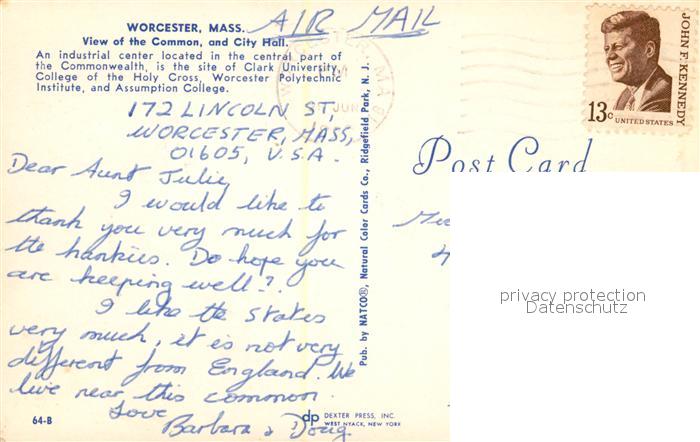 WORCESTER, MASS.
AIR MAIL
View of the Common, and City Hall.
An industrial center located in the central part of
the Commonwealth, is the site of Clark University,
College of the Holy Cross, Worcester Polytechnic
Institute, and Assumption College.
172 LINCOLN ST,
WORCESTER, MASS,
01605, U.S.A.
Dear Aunt Julie,
I would like to
thank you very much for
the hankies. Do hope you
are keeping well?.
I like the States
very much, it is not very
different from England. We
live near this common.
Love
Barbara & Doug.
64-B
Pub. by NATCO®, Natural Color Cards Co., Ridgefield Park, N. J.
dp DEXTER PRESS, INC.
WEST NYACK, NEW YORK
JOHN F. KENNEDY
13c UNITED STATES
Post Card
privacy protection
Datenschutz